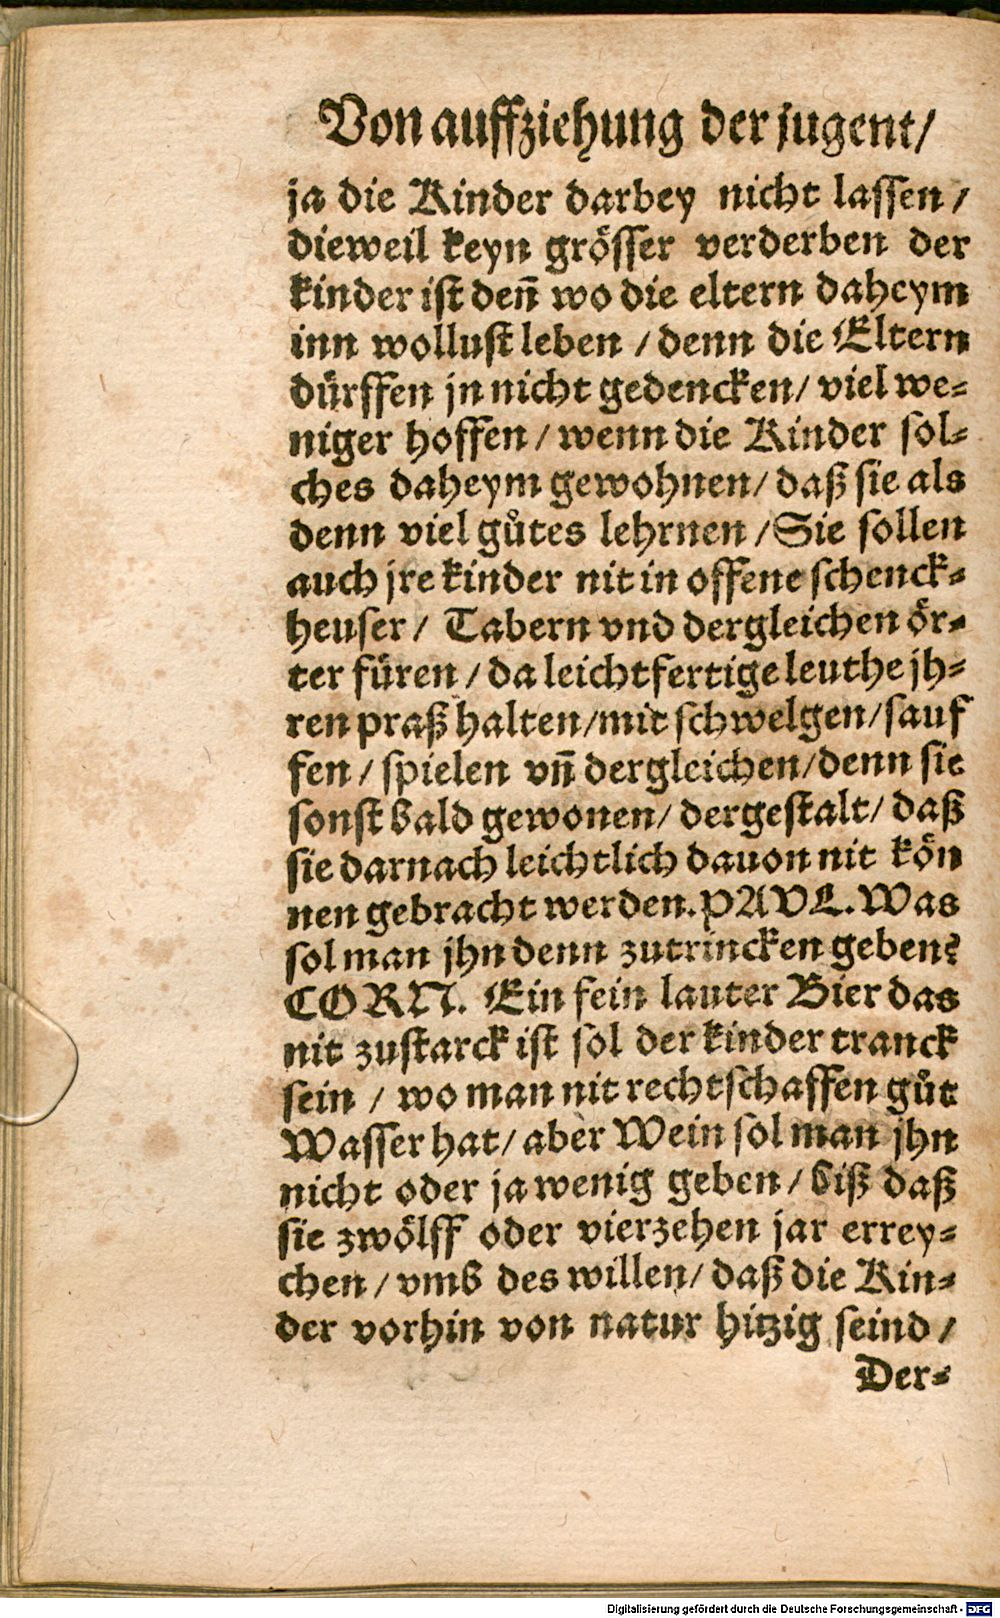 Von auffziehung der jugent/
ja die Kinder darbey nicht lassen/
dieweil keyn grösser verderben der
kinder ist deñ wo die eltern daheym
inn wollust leben/denn die Eltern
dürffen jn nicht gedencken/ viel we⸗
niger hoffen/wenn die Kinder sol⸗
ches daheym gewohnen/daß sie als
denn viel gůtes lehrnen/Sie sollen
auch jre kinder nit in offene schenck⸗
heuser/ Tabern vnd dergleichen ör⸗
ter füren/da leichtfertige leuthe jh⸗
ren praß halten/mit schwelgen/sauf
fen/spielen vñ dergleichen/denn sie
sonst bald gewonen/dergestalt/daß
sie darnach leichtlich dauon nit kön
nen gebracht werden.PAVL.Was
sol man jhn denn zutrincken geben?
CORN. Ein fein lauter Bier das
nit zustarck ist sol der kinder tranck
sein / wo man nit rechtschaffen gůt
Wasser hat/aber Wein sol man jhn
nicht oder ja wenig geben/biß daß
sie zwölff oder vierzehen jar errey⸗
chen/vmb des willen/daß die Kin⸗
der vorhin von natur hitzig seind/
Der⸗
Digitalisierung gefördert durch die Deutsche Forschungsgemeinschaft - DFG